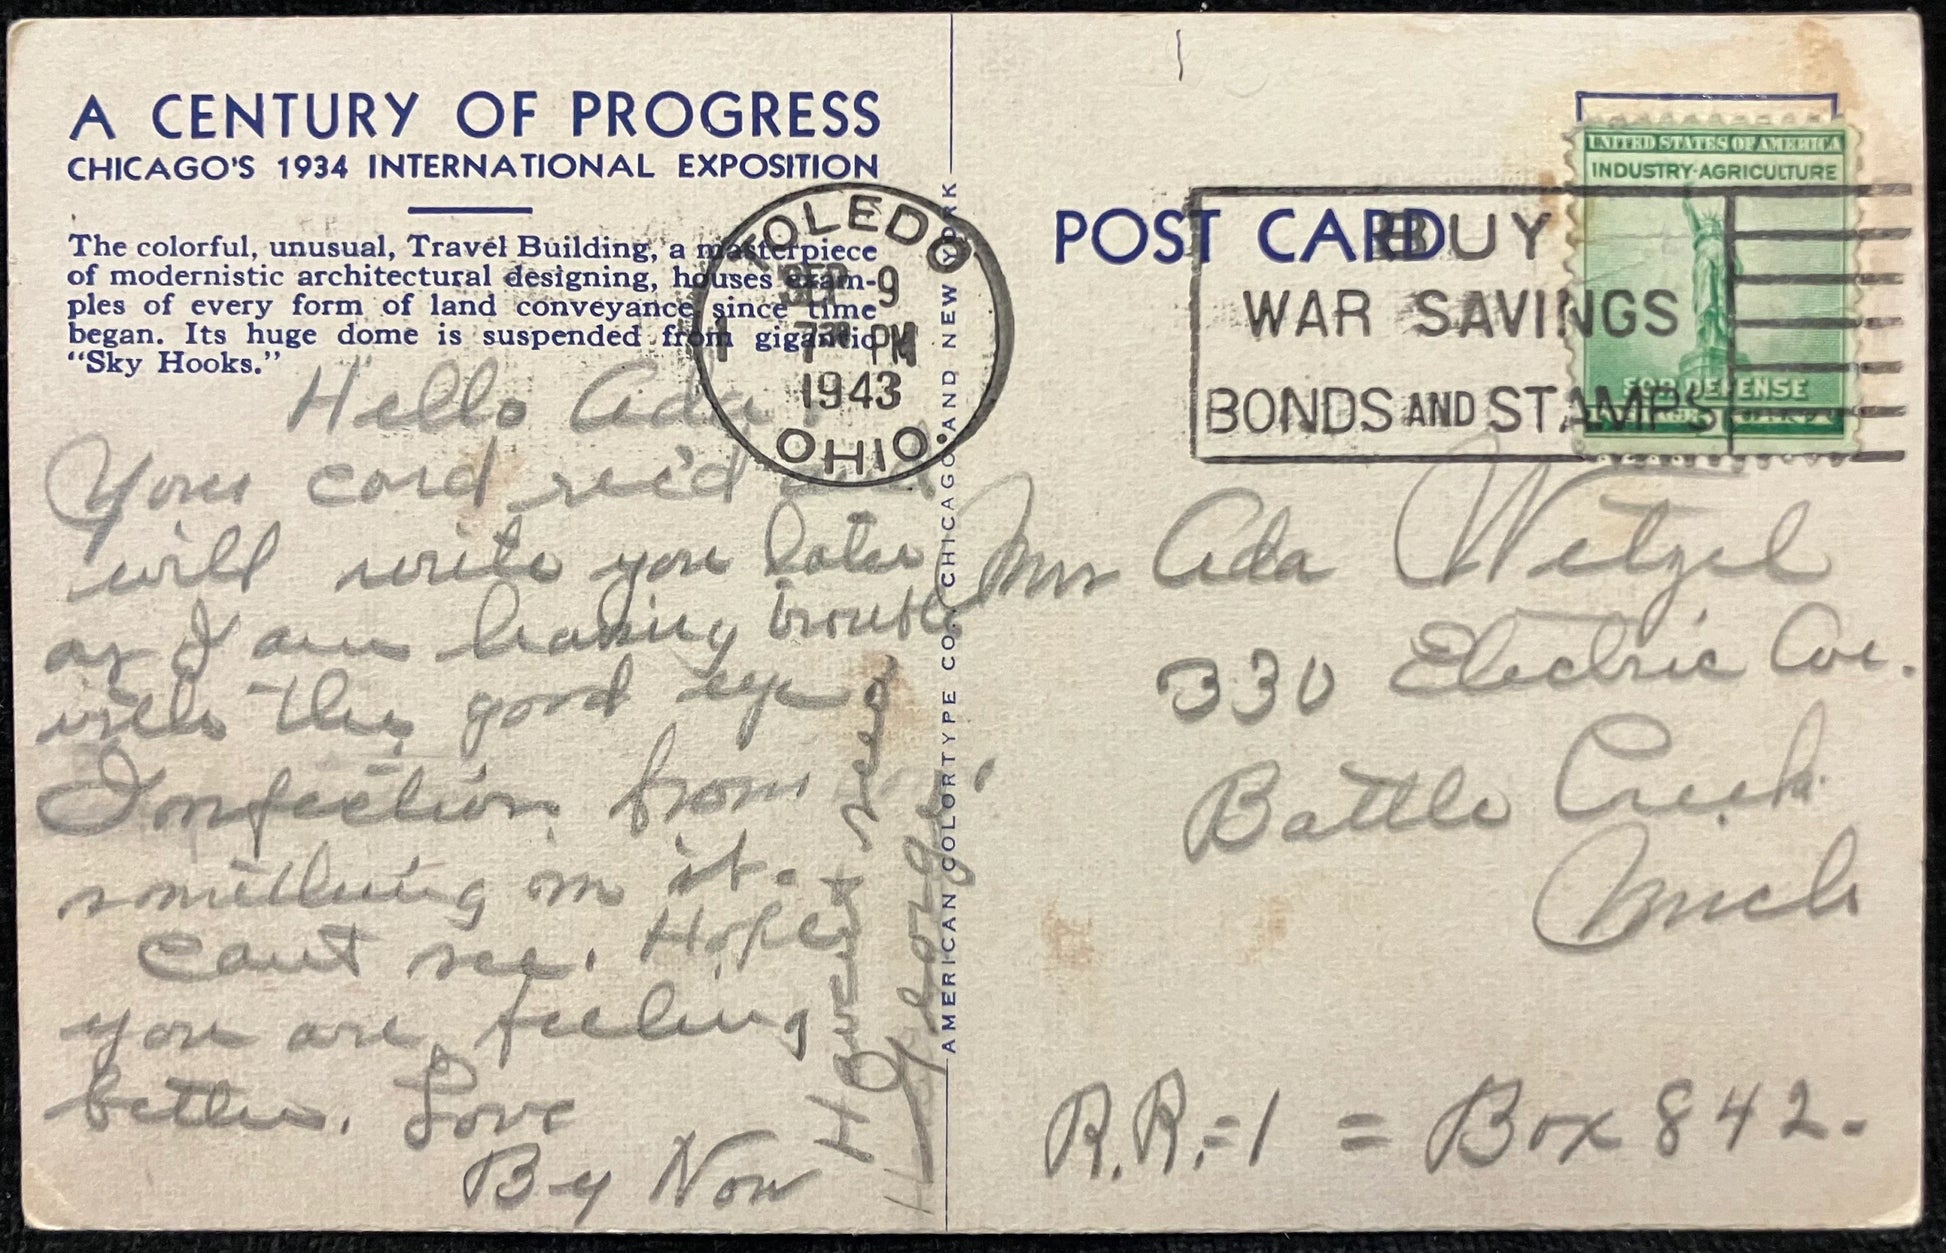 A CENTURY OF PROGRESS
CHICAGO'S 1934 INTERNATIONAL EXPOSITION
The colorful, unusual, Travel Building, a masterpiece
of modernistic architectural designing, houses exam-
ples of every form of land conveyance since time
began. Its huge dome is suspended from gigantic
"Sky Hooks."
Hello Ada
Your card rec'd and
will write you later
as I am having trouble
with the good eye
Infection from
something in it.
cant see. Hope
you are feeling
better. Love
By Now
Havent seen
George.
TOLEDO
SEP 9
7 PM
1943
OHIO.
AMERICAN COLORTYPE CO., CHICAGO AND NEW YORK
POST CARD
BUY
WAR SAVINGS
BONDS AND STAMPS
UNITED STATES OF AMERICA
INDUSTRY-AGRICULTURE
FOR DEFENSE
Mrs Ada Wetzel
330 Electric Ave.
Battle Creek
Mich
R.R.=1 = Box 842.